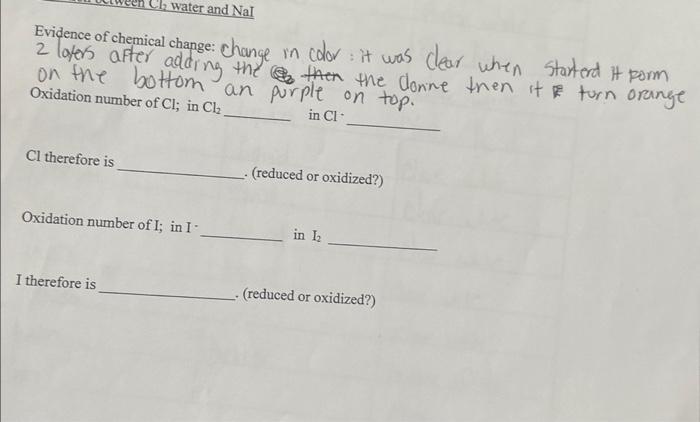 between Cl₂ water and NaI
Evidence of chemical change: change in color : it was clear when started it form
2 layers after adding the then the clorine then it turn orange
on the bottom an purple on top.
Oxidation number of Cl; in Cl₂ ________ in Cl⁻ ________
Cl therefore is ________. (reduced or oxidized?)
Oxidation number of I; in I⁻ ________ in I₂ ________
I therefore is ________. (reduced or oxidized?)